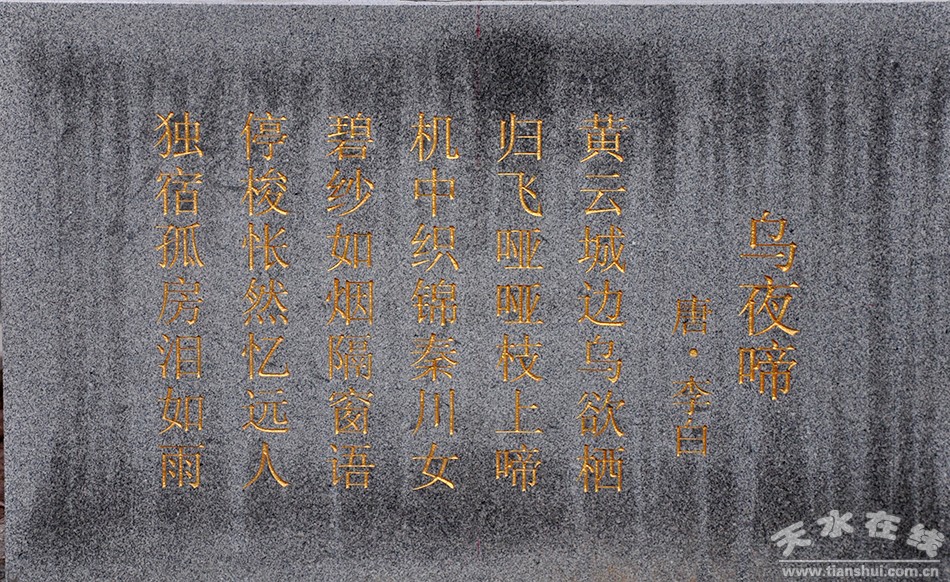 乌夜啼
唐·李白
黄云城边乌欲栖
归飞哑哑枝上啼
机中织锦秦川女
碧纱如烟隔窗语
停梭怅然忆远人
独宿孤房泪如雨
天水在线
www.tianshui.com.cn